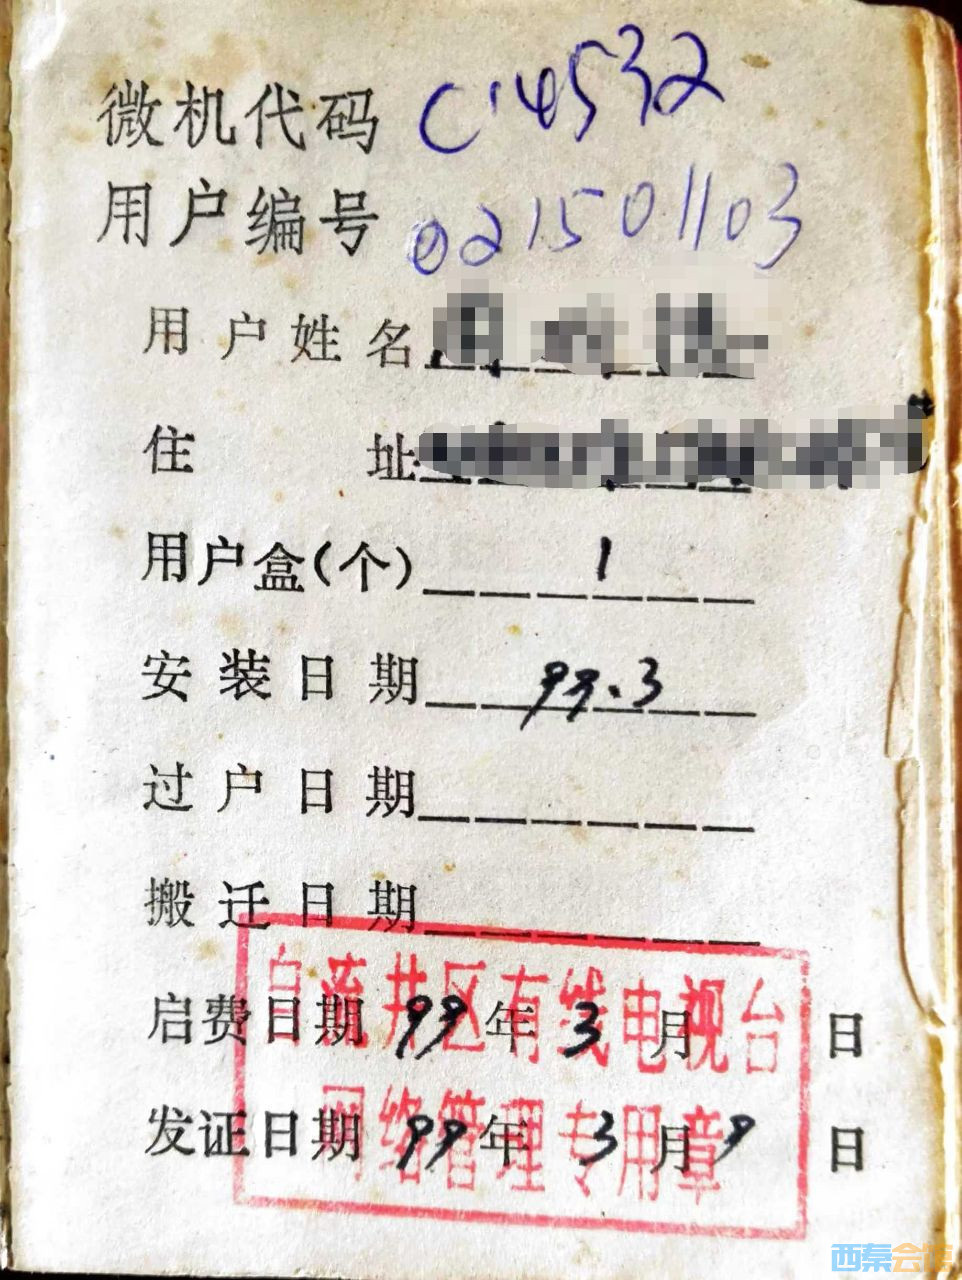 微机代码 C14532
用户编号 021501103
用户姓名
住址
用户盒(个) 1
安装日期 99.3
过户日期
搬迁日期
启费日期 99年3月 日
发证日期 99年3月9日
自流井区有线电视台
网络管理专用章
西秦会馆